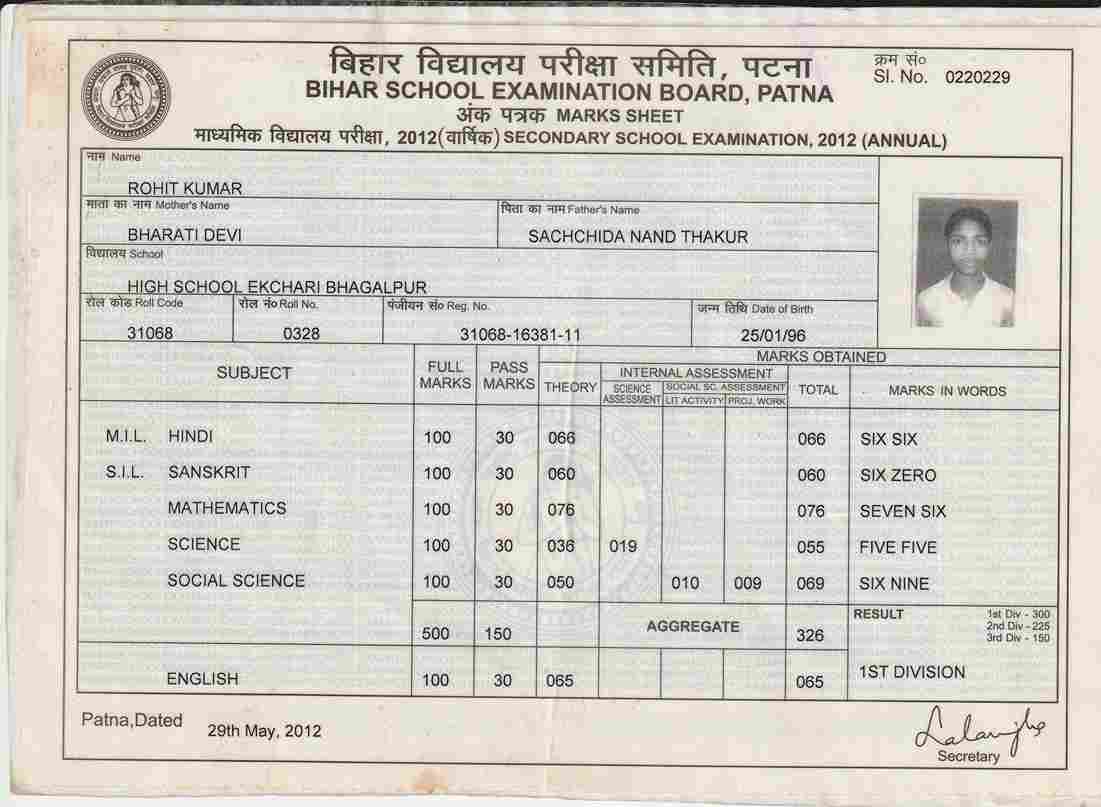 बिहार विद्यालय परीक्षा समिति, पटना
क्रम सं०
BIHAR SCHOOL EXAMINATION BOARD, PATNA
Sl. No. 0220229
अंक पत्रक MARKS SHEET
माध्यमिक विद्यालय परीक्षा, 2012(वार्षिक) SECONDARY SCHOOL EXAMINATION, 2012 (ANNUAL)
नाम Name
ROHIT KUMAR
माता का नाम Mother's Name पिता का नाम Father's Name
BHARATI DEVI SACHCHIDA NAND THAKUR
विद्यालय School
HIGH SCHOOL EKCHARI BHAGALPUR
रोल कोड Roll Code रोल नं० Roll No. पंजीयन सं० Reg. No. जन्म तिथि Date of Birth
31068 0328 31068-16381-11 25/01/96
SUBJECT FULL MARKS PASS MARKS MARKS OBTAINED
THEORY INTERNAL ASSESSMENT TOTAL MARKS IN WORDS
SCIENCE ASSESSMENT SOCIAL SC. ASSESSMENT
LIT ACTIVITY PROJ. WORK
M.I.L. HINDI 100 30 066 066 SIX SIX
S.I.L. SANSKRIT 100 30 060 060 SIX ZERO
MATHEMATICS 100 30 076 076 SEVEN SIX
SCIENCE 100 30 036 019 055 FIVE FIVE
SOCIAL SCIENCE 100 30 050 010 009 069 SIX NINE
500 150 AGGREGATE 326 RESULT 1st Div - 300
2nd Div - 225
3rd Div - 150
ENGLISH 100 30 065 065 1ST DIVISION
Patna,Dated 29th May, 2012
Secretary